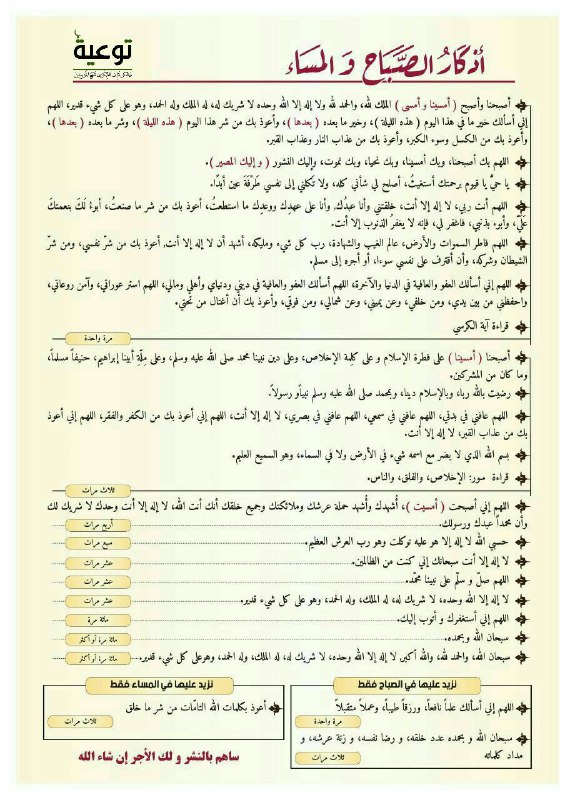 توعية
أذكار الصباح و المساء
أصبحنا وأصبح ( أمسينا و أمسى ) الملك لله، والحمد لله ولا إله إلا الله وحده لا شريك له، له الملك وله الحمد، وهو على كل شيء قدير، اللهم
إني أسألك خير ما في هذا اليوم ( هذه الليلة )، وخير ما بعده ( بعدها )، وأعوذ بك من شر هذا اليوم ( هذه الليلة )، وشر ما بعده ( بعدها )،
وأعوذ بك من الكسل وسوء الكبر، وأعوذ بك من عذاب النار وعذاب القبر.
اللهم بك أصبحنا، وبك أمسينا، وبك نحيا، وبك نموت، وإليك النشور ( و إليك المصير ).
يا حيُّ يا قيوم برحمتك أستغيثُ، أصلح لي شأني كله، ولا تكلني إلى نفسي طَرْفَةَ عين أبدًا.
اللهم أنت ربي، لا إله إلا أنت، خلقتني وأنا عبدُك، وأنا على عهدِك ووعدِك ما استطعتُ، أعوذ بك من شر ما صنعتُ، أبوءُ لَكَ بنعمتكَ
عَلَيَّ، وأبوء بذنبي، فاغفر لي، فإنه لا يغفرُ الذنوب إلا أنت.
اللهم فاطر السموات والأرض، عالم الغيب والشهادة، رب كل شيء ومليكه، أشهد أن لا إله إلا أنت، أعوذ بك من شرّ نفسي، ومن شرّ
الشيطان وشركه، وأن أقترف على نفسي سوءا، أو أجره إلى مسلم.
اللهم إني أسألك العفو والعافية في الدنيا والآخرة، اللهم أسألك العفو والعافية في ديني ودنياي وأهلي ومالي، اللهم استر عوراتي، وآمن روعاتي،
واحفظني من بين يدي، ومن خلفي، وعن يميني، وعن شمالي، ومن فوقي، وأعوذ بك أن أغتال من تحتي.
قراءة آية الكرسي
مرة واحدة
أصبحنا ( أمسينا ) على فطرة الإسلام و على كلمة الإخلاص، وعلى دين نبينا محمد صلى الله عليه وسلم، وعلى ملّة أبينا إبراهيم، حنيفاً مسلماً،
وما كان من المشركين.
رضيت بالله ربا، وبالإسلام دينا، وبمحمد صلى الله عليه وسلم نبياً و رسولاً.
اللهم عافني في بدني، اللهم عافني في سمعي، اللهم عافني في بصري، لا إله إلا أنت، اللهم إني أعوذ بك من الكفر والفقر، اللهم إني أعوذ
بك من عذاب القبر، لا إله إلا أنت.
بسم الله الذي لا يضر مع اسمه شيء في الأرض ولا في السماء، وهو السميع العليم.
قراءة سور: الإخلاص، والفلق، والناس.
ثلاث مرات
اللهم إني أصبحت ( أمسيت )، أُشهدك وأُشهد حملة عرشك وملائكتك وجميع خلقك أنك أنت الله، لا إله إلا أنت وحدك لا شريك لك
وأن محمداً عبدك ورسولك.
أربع مرات
حسبي الله لا إله إلا هو عليه توكلت وهو رب العرش العظيم.
سبع مرات
لا إله إلا أنت سبحانك إني كنت من الظالمين.
عشر مرات
اللهم صلّ و سلّم على نبينا محمّد.
عشر مرات
لا إله إلا الله وحده، لا شريك له، له الملك، وله الحمد، وهو على كل شيء قدير.
عشر مرات
اللهم إني أستغفرك و أتوب إليك.
مائة مرة
سبحان الله وبحمده.
مائة مرة أو أكثر
سبحان الله، والحمد لله، والله أكبر، لا إله إلا الله وحده، لا شريك له، له الملك، وله الحمد، وهو على كل شيء قدير.
مائة مرة أو أكثر
نزيد عليها في الصباح فقط
اللهم إني أسألك علماً نافعاً، ورزقاً طيباً، وعملاً متقبلاً
مرة واحدة
سبحان الله و بحمده عدد خلقه، و رضا نفسه، و زنة عرشه، و
مداد كلماته
ثلاث مرات
نزيد عليها في المساء فقط
أعوذ بكلمات الله التامّات من شر ما خلق
ثلاث مرات
ساهم بالنشر و لك الأجر إن شاء الله